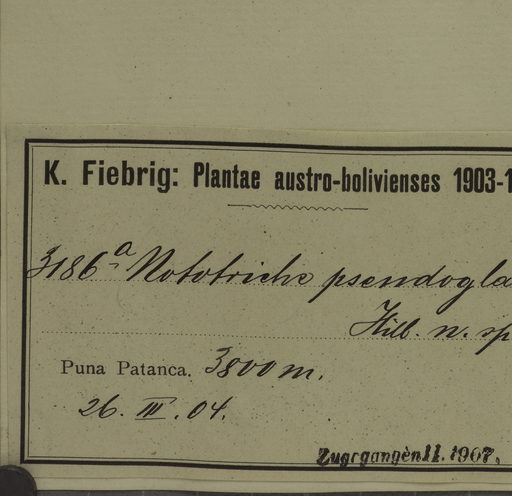 K. Fiebrig: Plantae austro-bolivienses 1903-1
3186a Nototriche pseudogla
Hill. n. sp
Puna Patanca. 3800 m.
26. III. 04.
Zugegangen 11. 1907.